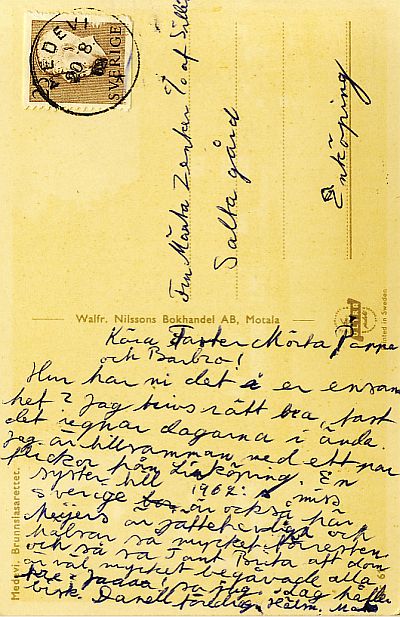 MEDEVI
30 8
SVERIGE
25
Fru Märta Zenker c/o af Sillé
Salta gård
Enköping
Walfr. Nilssons Bokhandel AB, Motala
Printed in Sweden
Medevi. Brunnslasarettet.
Kära Faster Märta, Pappa
och Barbro!
Hur har ni det i er ensam
het? Jag trivs rätt bra, fast
det regnar dagarna i ända.
Jag är tillsamman med ett par
flickor från Linköping. En
syster till 1962: s miss
Sverige är också här
Meijers är jättetrevliga och
hälsar så mycket förresten
och så sa Tant Brita att dom
är väl mycket begåvade alla
tre. jadaa! sa jag. Idag håller
bisk. Danell föredrag.